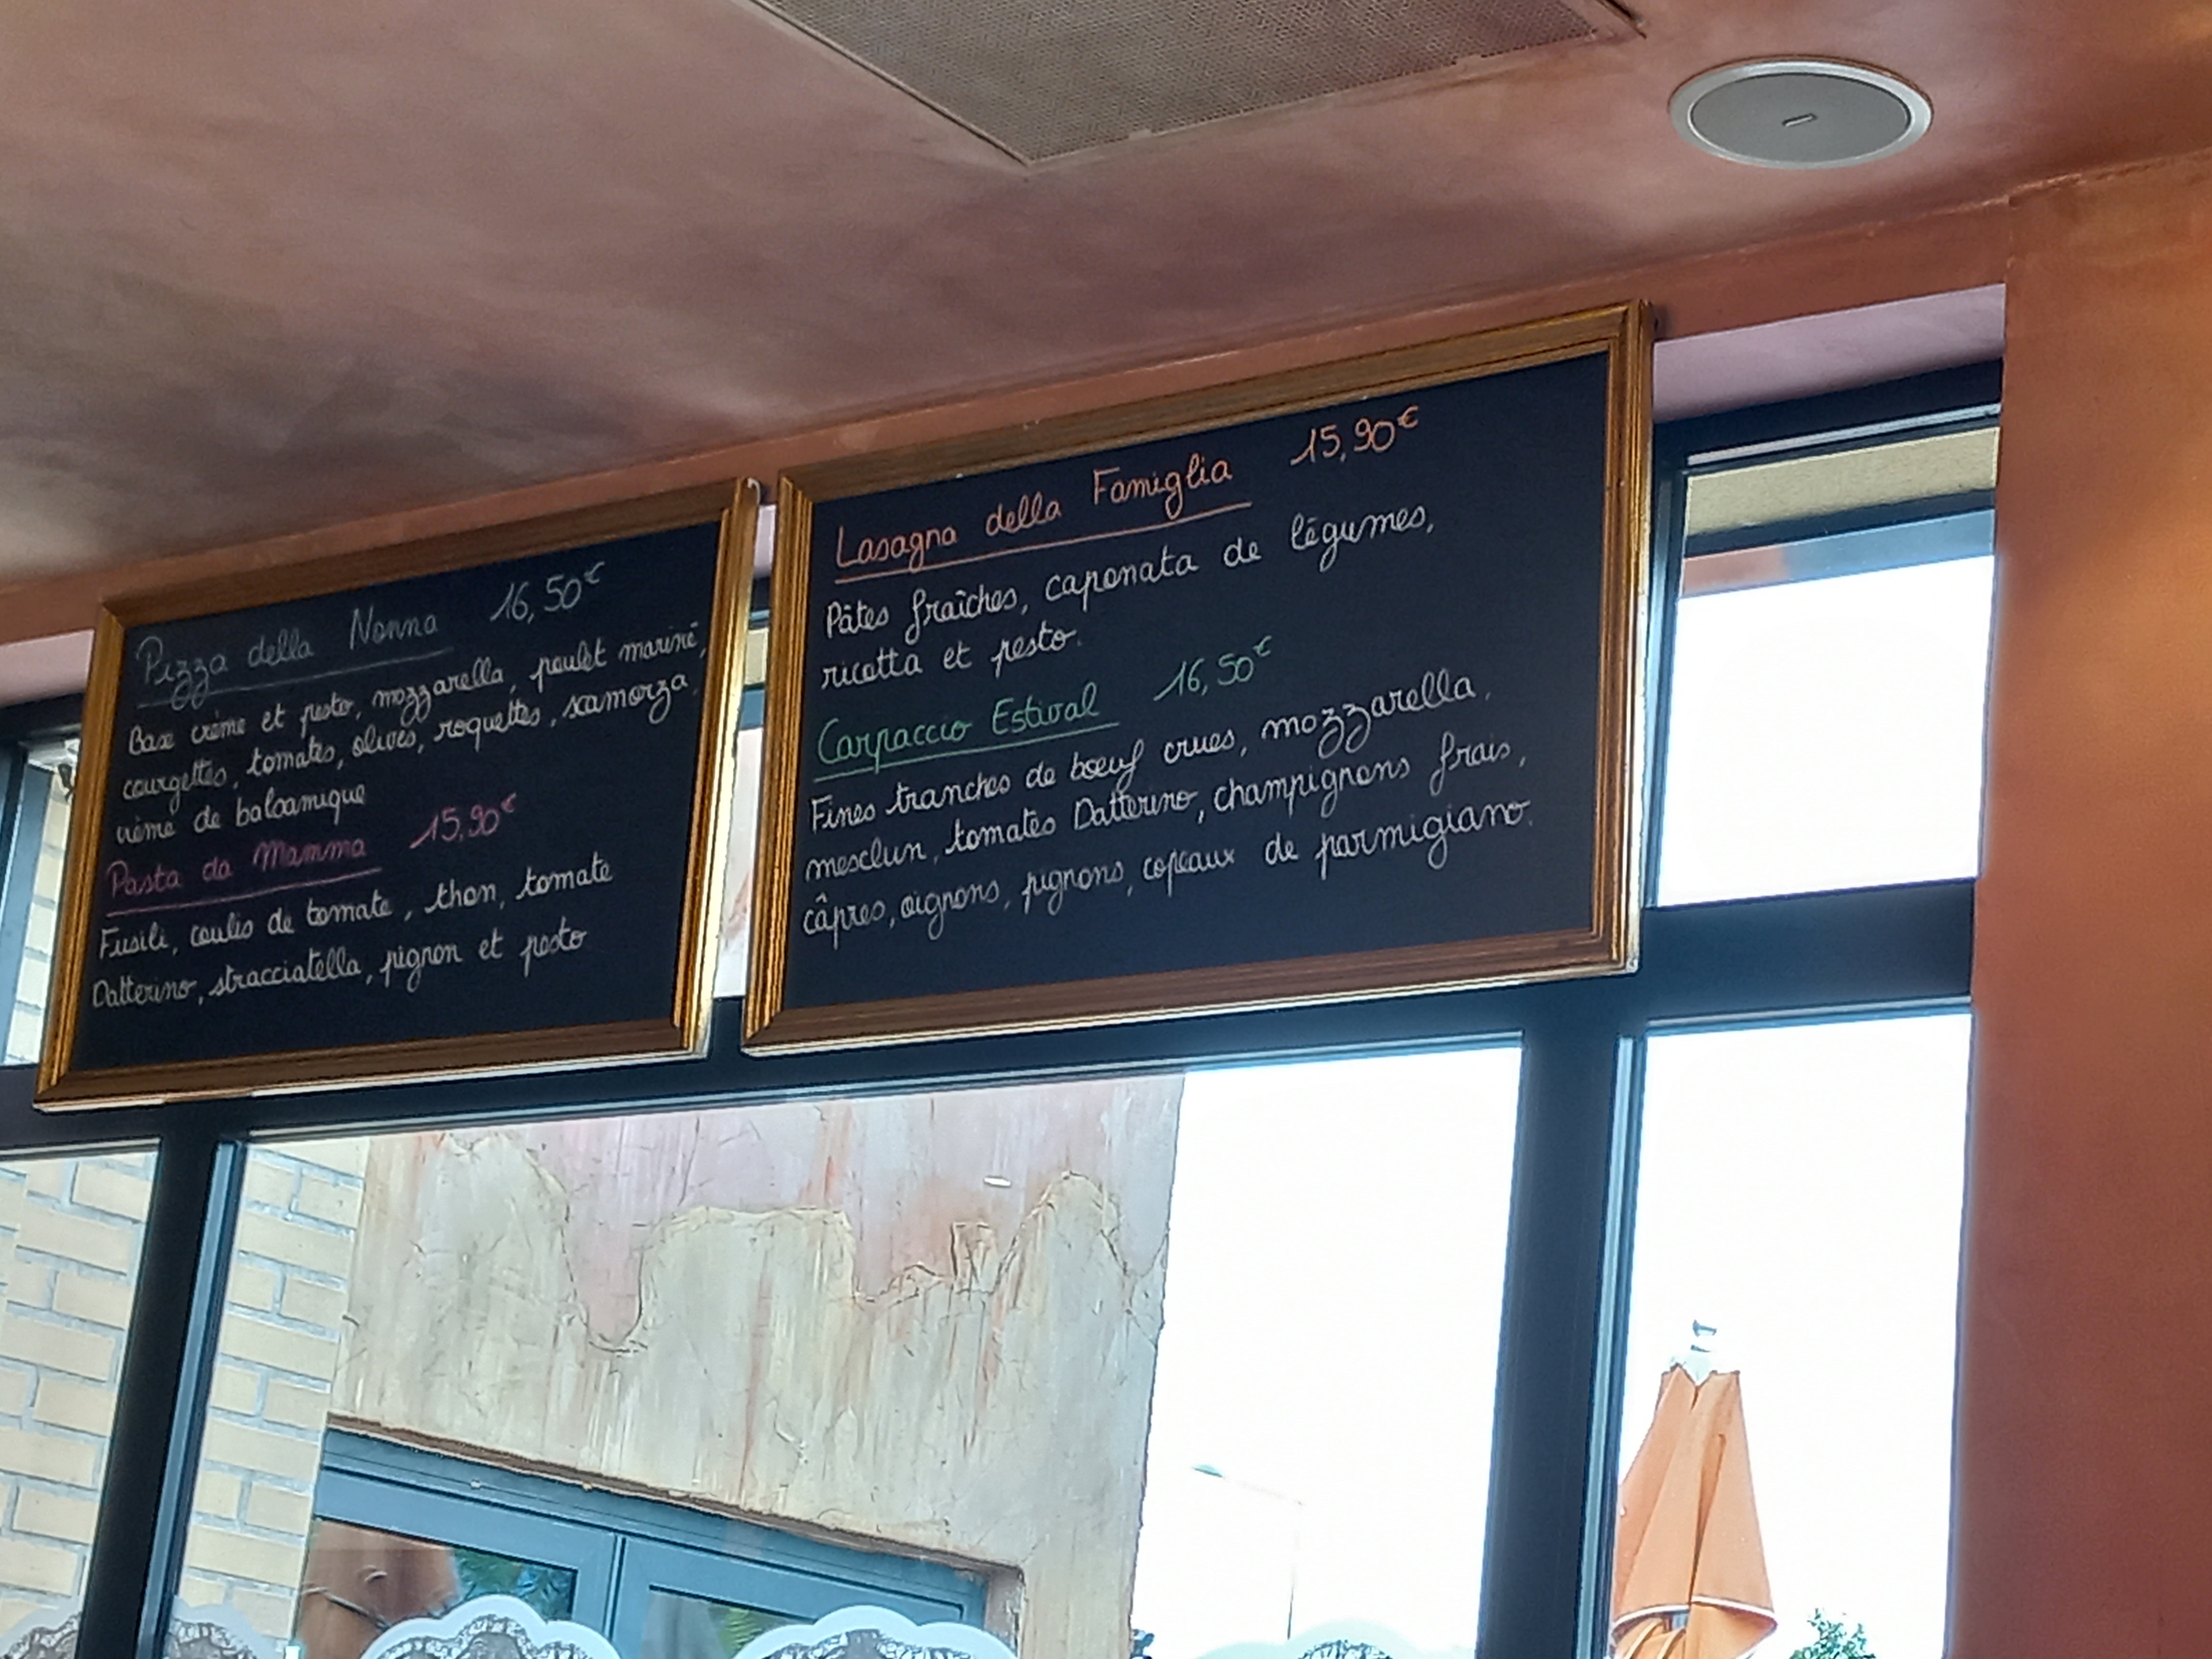 Pizza della Nonna 16,50€
Base crème et pesto, mozzarella, poulet mariné,
courgettes, tomates, olives, roquettes, scamorza,
crème de balsamique
Pasta da Mamma 15,90€
Fusili, coulis de tomate, thon, tomate
Datterino, stracciatella, pignon et pesto
Lasagna della Famiglia 15,90€
Pâtes fraîches, caponata de légumes,
ricotta et pesto.
Carpaccio Estival 16,50€
Fines tranches de bœuf crues, mozzarella,
mesclun, tomates Datterino, champignons frais,
câpres, oignons, pignons, copeaux de parmigiano.